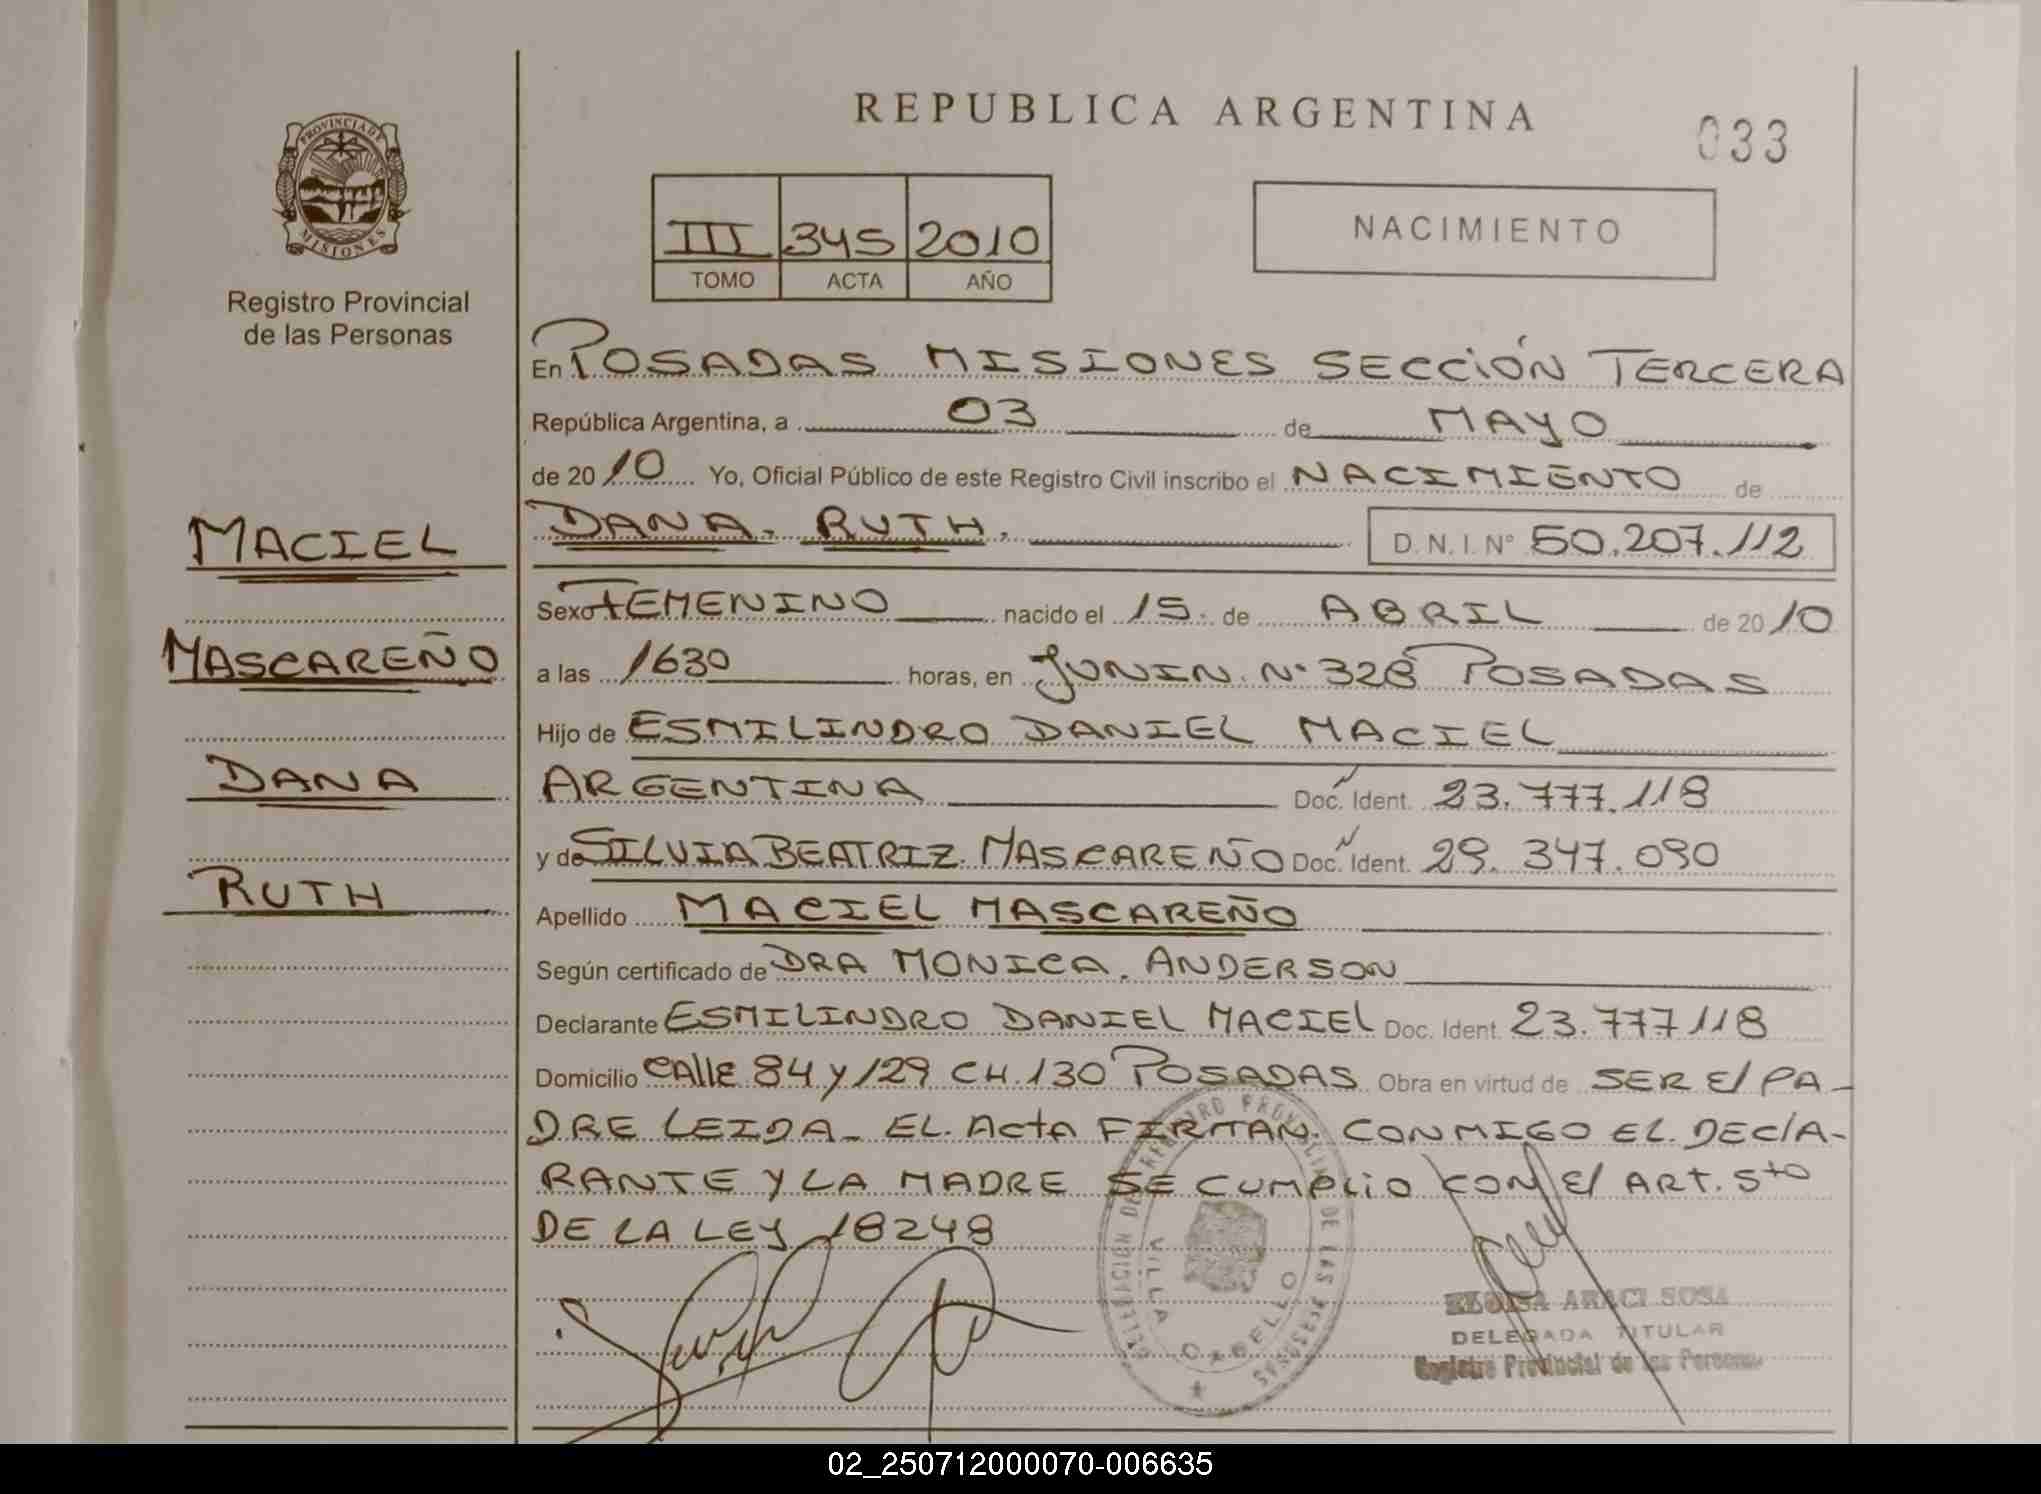 REPUBLICA ARGENTINA
033
PROVINCIA DE
MISIONES
Registro Provincial
de las Personas
III 345 2010
TOMO ACTA AÑO
NACIMIENTO
En POSADAS MISIONES SECCIÓN TERCERA
República Argentina, a 03 de MAYO
de 2010 Yo, Oficial Público de este Registro Civil inscribo el NACIMIENTO de
DANA. RUTH. D. N. I. N° 50.207.112
Sexo FEMENINO nacido el 15. de ABRIL de 2010
a las 1630 horas, en JUNIN. N° 328 POSADAS
Hijo de ESMILINDRO DANIEL MACIEL
ARGENTINA Doc. Ident. 23.777.118
y de SILVIA BEATRIZ. MASCAREÑO Doc. Ident. 29.347.090
Apellido MACIEL MASCAREÑO
Según certificado de DRA MONICA. ANDERSON
Declarante ESMILINDRO DANIEL MACIEL Doc. Ident. 23.777118
Domicilio CAllE 84 y 129 CH.130 POSADAS Obra en virtud de SER El PA-
DRE LEIDA_ EL. ActA FIRMAN. CONMIGO EL. DEClA-
RANTE Y LA MADRE SE CUMPLIO CON El ART. 5to
DE LA LEY 18248
MACIEL
MASCAREÑO
DANA
RUTH
DELEGACIÓN DEL REGISTRO PROVINCIAL DE LAS PERSONAS
VILLA CABELLO
ELOISA ARACI SOSA
DELEGADA TITULAR
Registro Provincial de las Personas
02_250712000070-006635